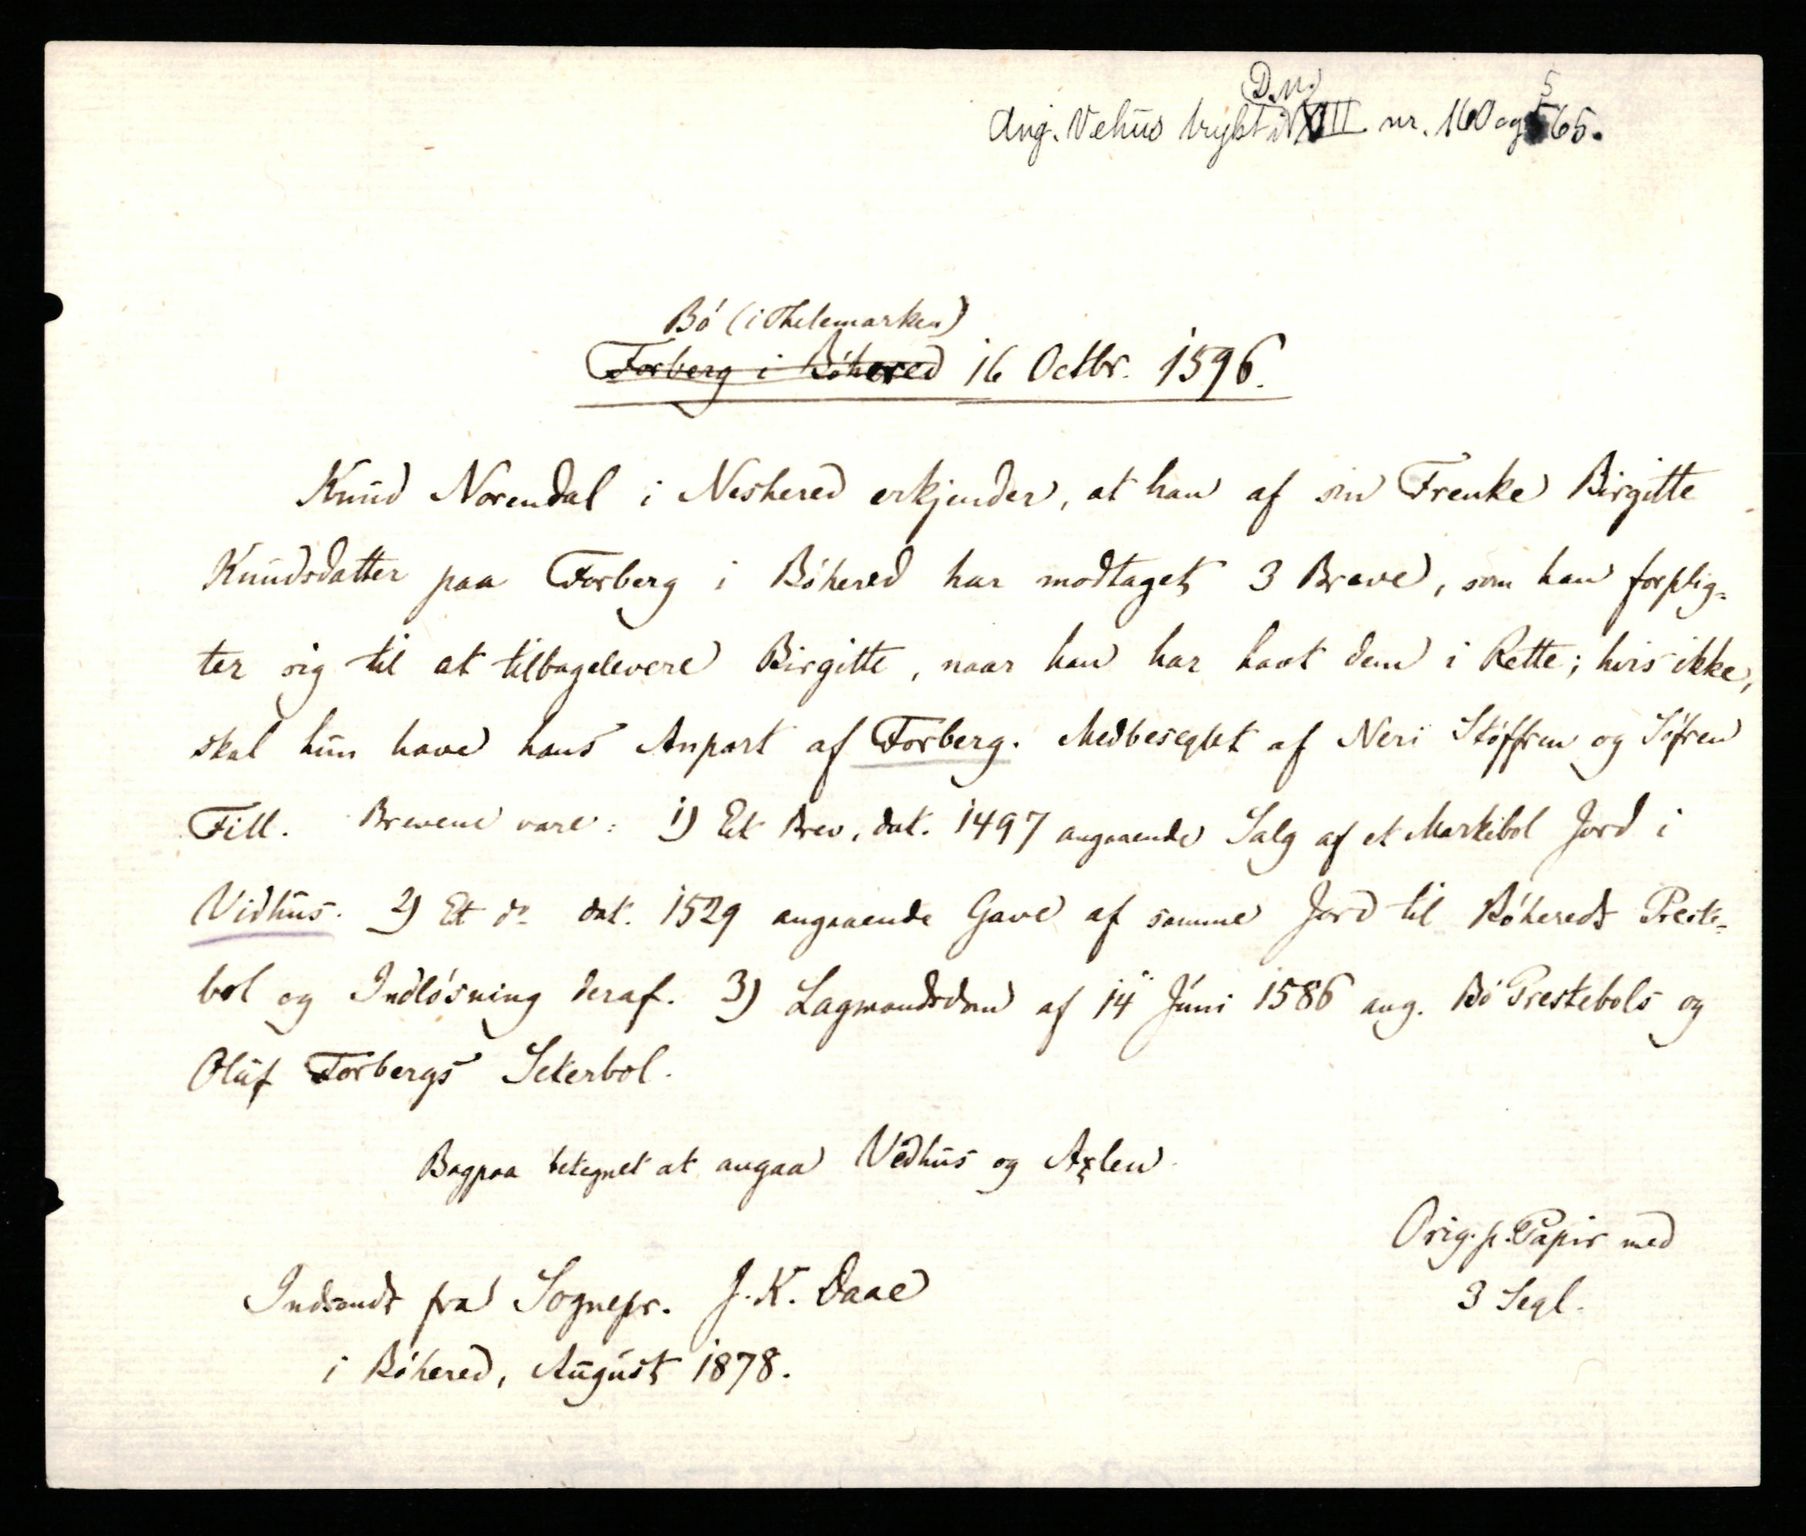 D. N.
Ang. Vehus trykt i XIII nr. 160 og 565.
Bó (i Thelemarken)
Forberg i Bóhered 16 Octbr. 1596.
Knud Norendal i Neshered erkjender, at han af sin Frenke Birgitte
Knudsdatter paa Forberg i Bóhered har modtaget 3 Breve, som han forplig-
ter sig til at tilbagelevere Birgitte, naar han har havt dem i Rette; hvis ikke,
skal hun have hans Anpart af Forberg. Medbeseglet af Neri Stóffren og Sófren
Fill. Brevene vare: 1) Et Brev, dat. 1497 angaaende Salg af et Markebol Jord i
Vidhus. 2) Et do dat. 1529 angaaende Gave af samme Jord til Bóhereds Preste-
bol og Indlósning deraf. 3) Lagmandsdom af 14 Juni 1586 ang. Bó Prestebols og
Oluf Forbergs Seterbol.
Bagpaa betegnet at angaa Vedhus og Axlen.
Orig. p. Papir med
3 Segl.
Indsendt fra Sognepr. J. K. Daae
i Bóhered, August 1878.